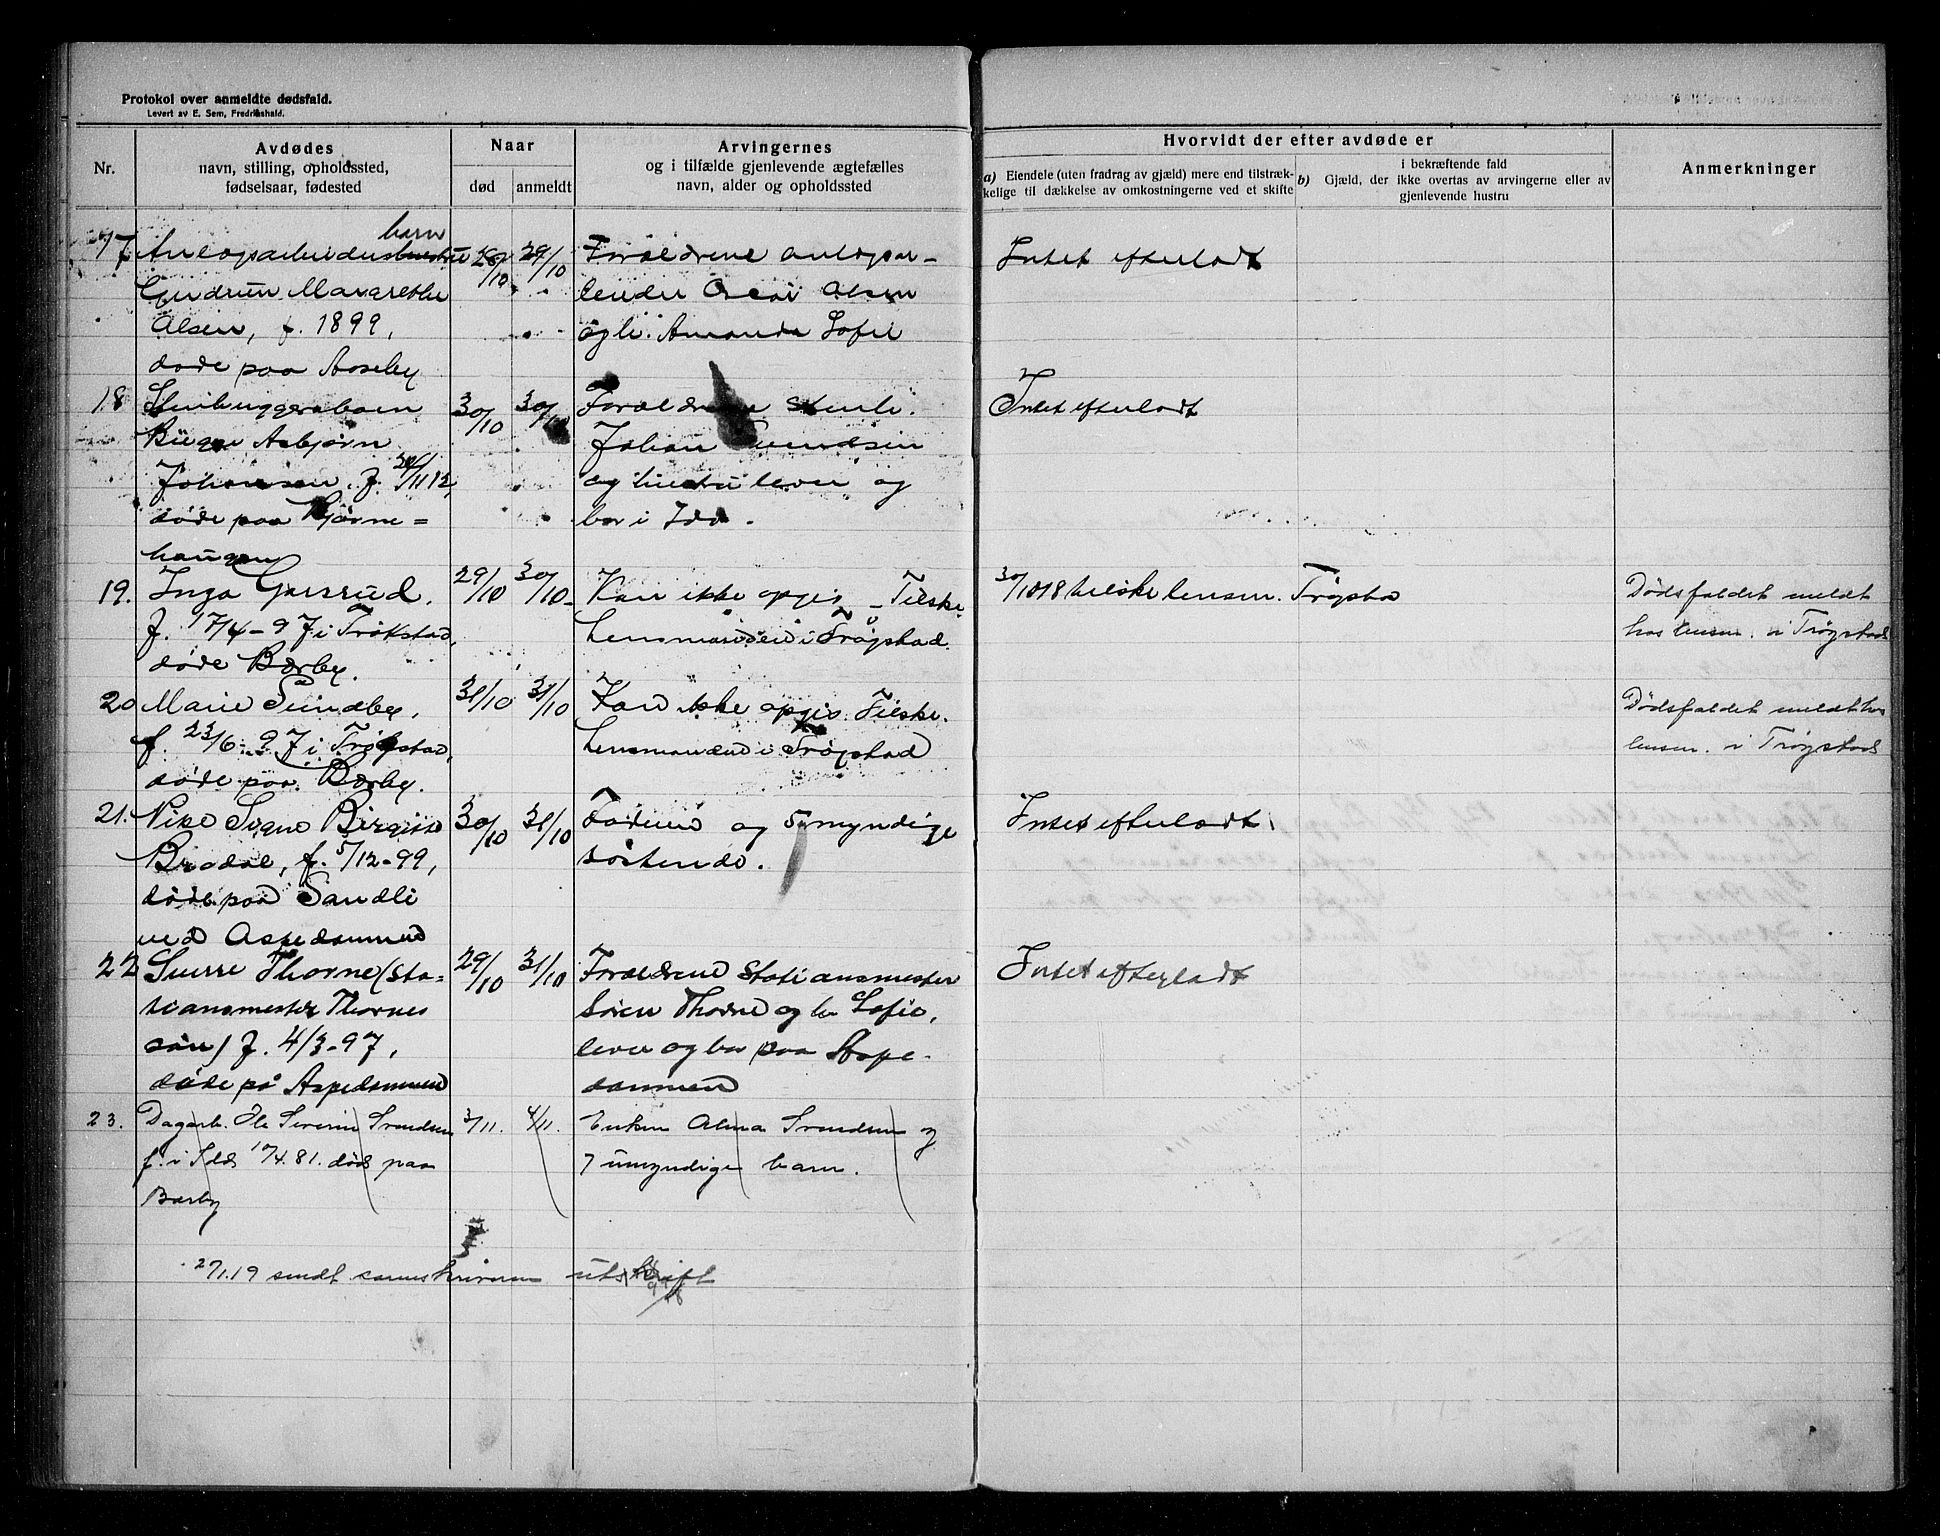 Protokol over anmeldte dødsfald.
Levert av E. Sem, Fredrikshald.
Nr.
Avdødes
navn, stilling, opholdssted,
fødselsaar, fødested
Naar
død
anmeldt
Arvingernes
og i tilfælde gjenlevende ægtefælles
navn, alder og opholdssted
Hvorvidt der efter avdøde er
a) Eiendele (uten fradrag av gjæld) mere end tilstræk-
kelige til dækkelse av omkostningerne ved et skifte
i bekræftende fald
b) Gjæld, der ikke overtas av arvingerne eller av
gjenlevende hustru
Anmerkninger
17
barn
Anlægsarbeiders
Gudrun Margrethe
Olsen, f. 1899,
døde paa Aaseby
28/10
29/10
Forældrene anlægsar-
beider Oscar Olsen
og h. Amanda Sofie
Intet efterladt
18
Stenhuggerabarn
Birger Asbjørn
Johansen, f. 1112,
døde paa Bjørne=
haugen
30/10
30/10
Forældrene stenh.
Johan
og hustru lever og
bor i Idd.
Intet efterladt
19.
Inga
f. 17/4-97 i Trøkstad,
døde Bærby.
29/10
30/10
Kan ikke opgis - Tilske.
Lensmanden i Trøgstad.
30/1018 tilske lensm. Trøgstad
Dødsfaldet meldt
hos lensm. i Trøgstad
20
Marie Sundby,
f. 23/6-97 i Trøgstad,
døde paa Bærby.
31/10
31/10
Kan ikke opgis. Tilske.
Lensmanden i Trøgstad
Dødsfaldet meldt hos
lensm. i Trøgstad
21.
Signe Birgitte
Bredal, f. 5/12-99,
døde paa Sandli
ved Aspedammen
30/10
31/10
Faderen og 5 myndige
søskende.
Intet efterladt
22
Sverre Thorne (sta-
tionsmester Thornes
søn) f. 4/3-97,
døde på Aspedammen
29/10
31/10
Forældrene Stationsmester
Sören Thorne og h. Sofie,
lever og bor paa Aspe-
dammen
Intet efterladt
23.
Dagarb. Ole Severin Svendsen
f. i Idd 17/4.81. død paa
Bærby
3/11.
4/11.
Enken Alma Svendsen og
7 umyndige barn.
2/1.19 sendt sorenskriveren utskrift